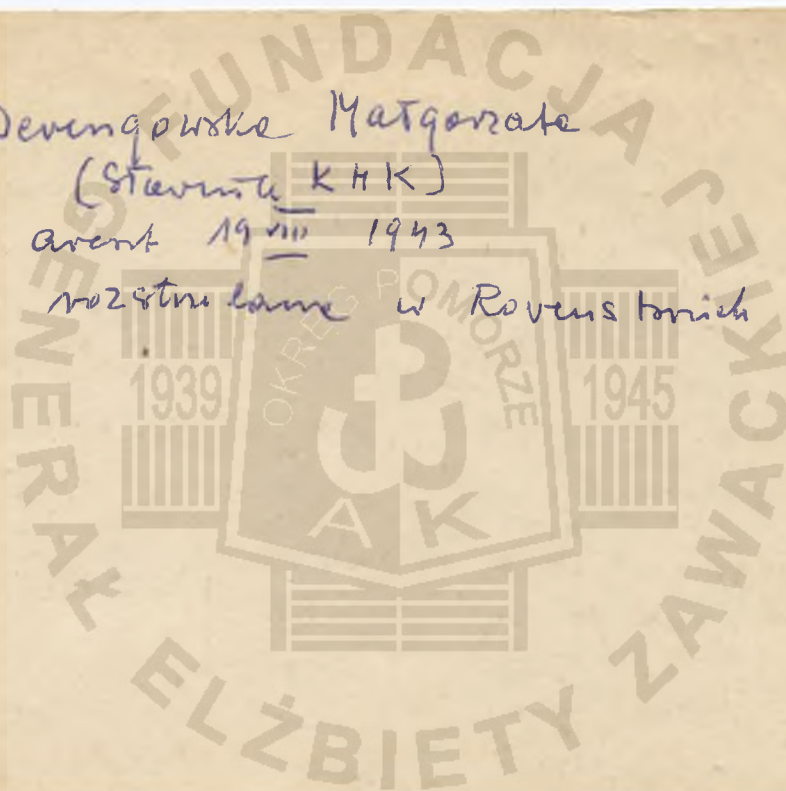 Derengowska Małgorzata
(Słownik KHK)
areszt 19 VIII 1943
rozstrzelana w Rovensbrück
FUNDACJA GENERAŁ ELŻBIETY ZAWACKIEJ
OKRĘG POMORZE
1939
1945
AK